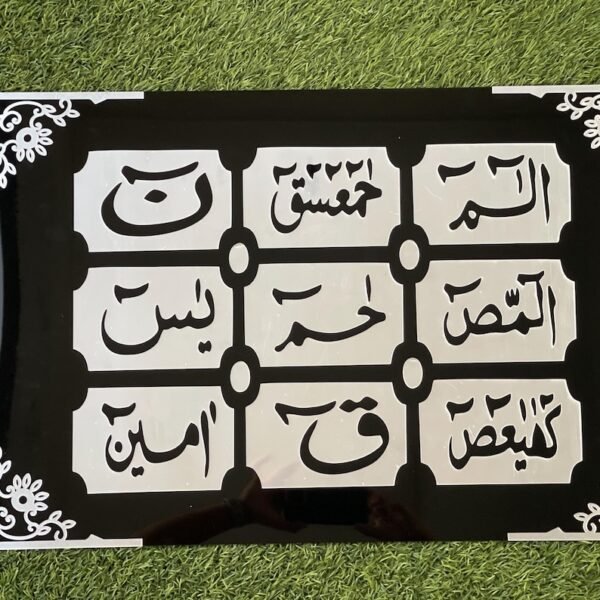 الٓمٓ
حمٓعٓسٓقٓ
نٓ
الٓمّٓصٓ
حمٓ
يسٓ
كٓهيعٓصٓ
قٓ
امين